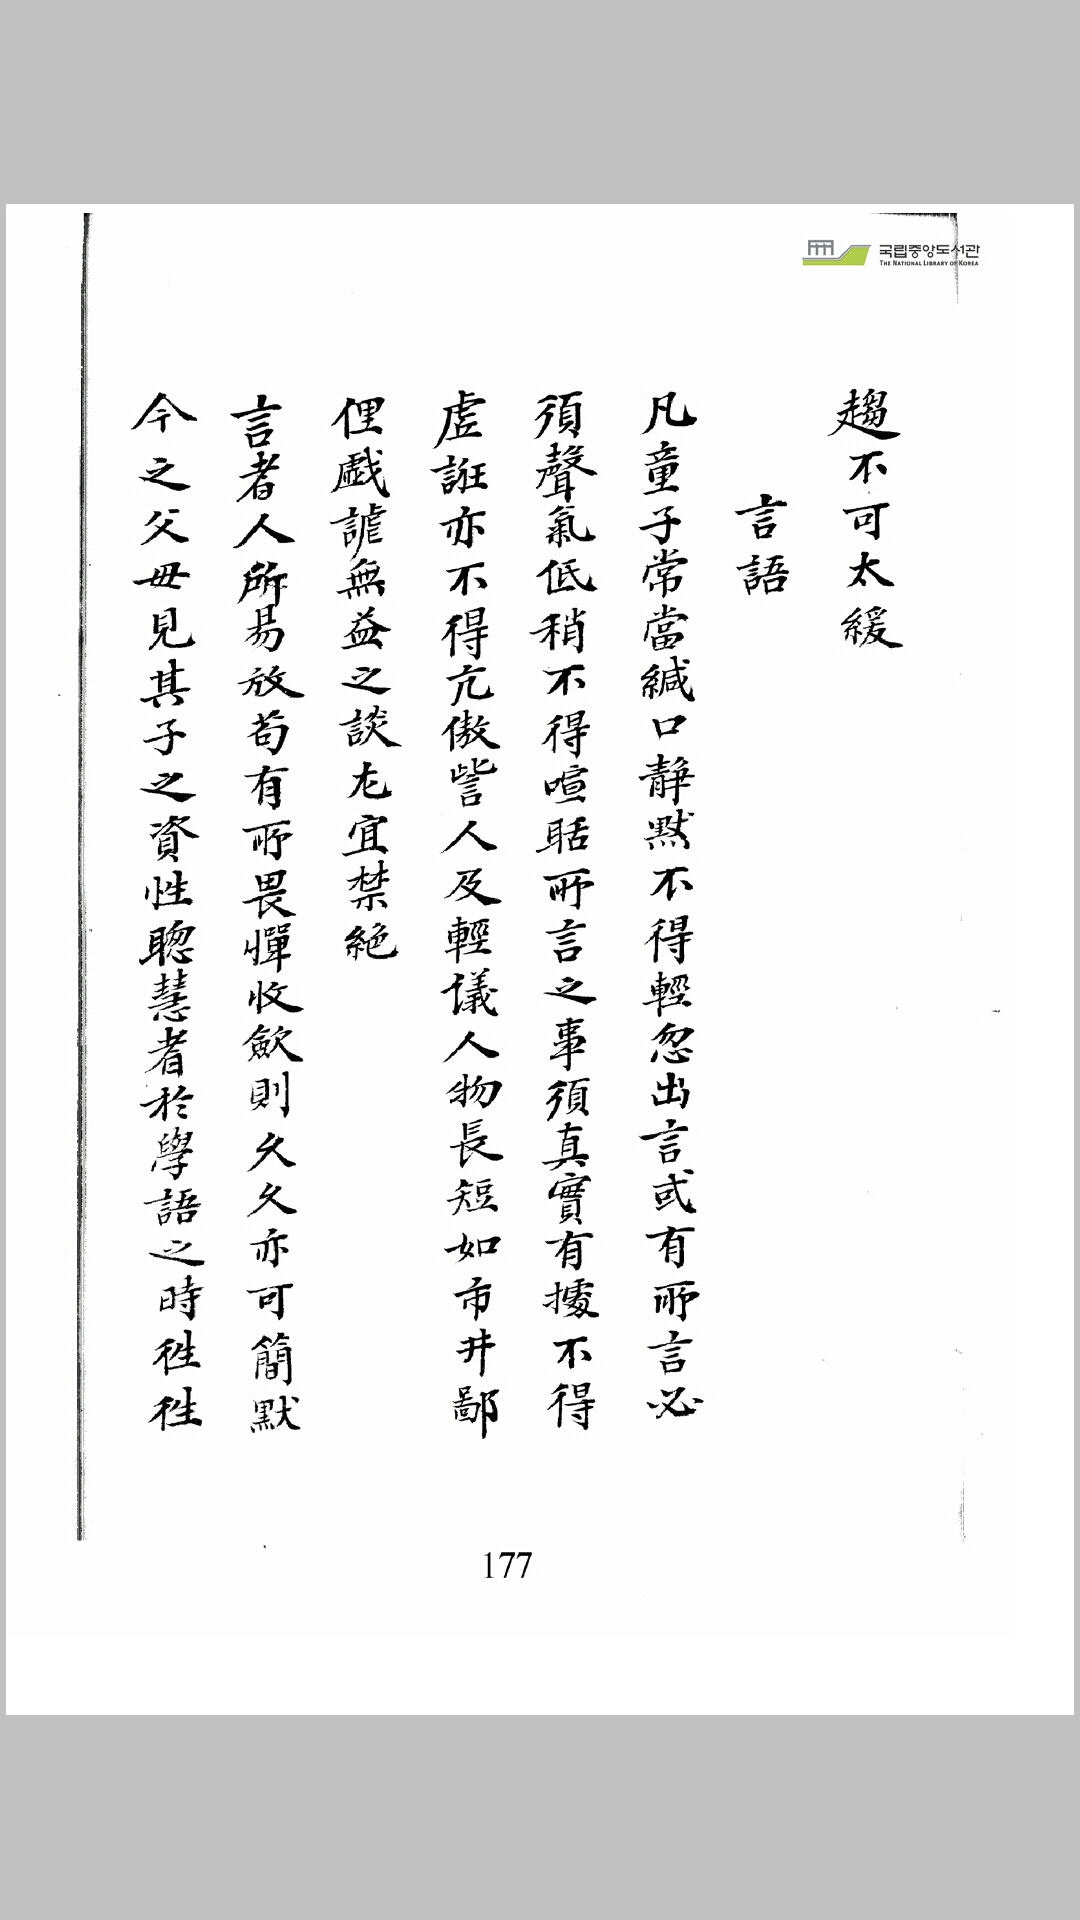 국립중앙도서관
THE NATIONAL LIBRARY OF KOREA
趨不可太緩
言語
凡童子常當緘口靜黙不得輕忽出言或有所言必
須聲氣低稍不得喧聒所言之事須真實有據不得
虛誑亦不得亢傲訾人及輕議人物長短如市井鄙
俚戱謔無益之談尤宜禁絶
言者人所易放苟有所畏憚收歛則久久亦可簡默
今之父毋見其子之資性聰慧者於學語之時徃徃
177